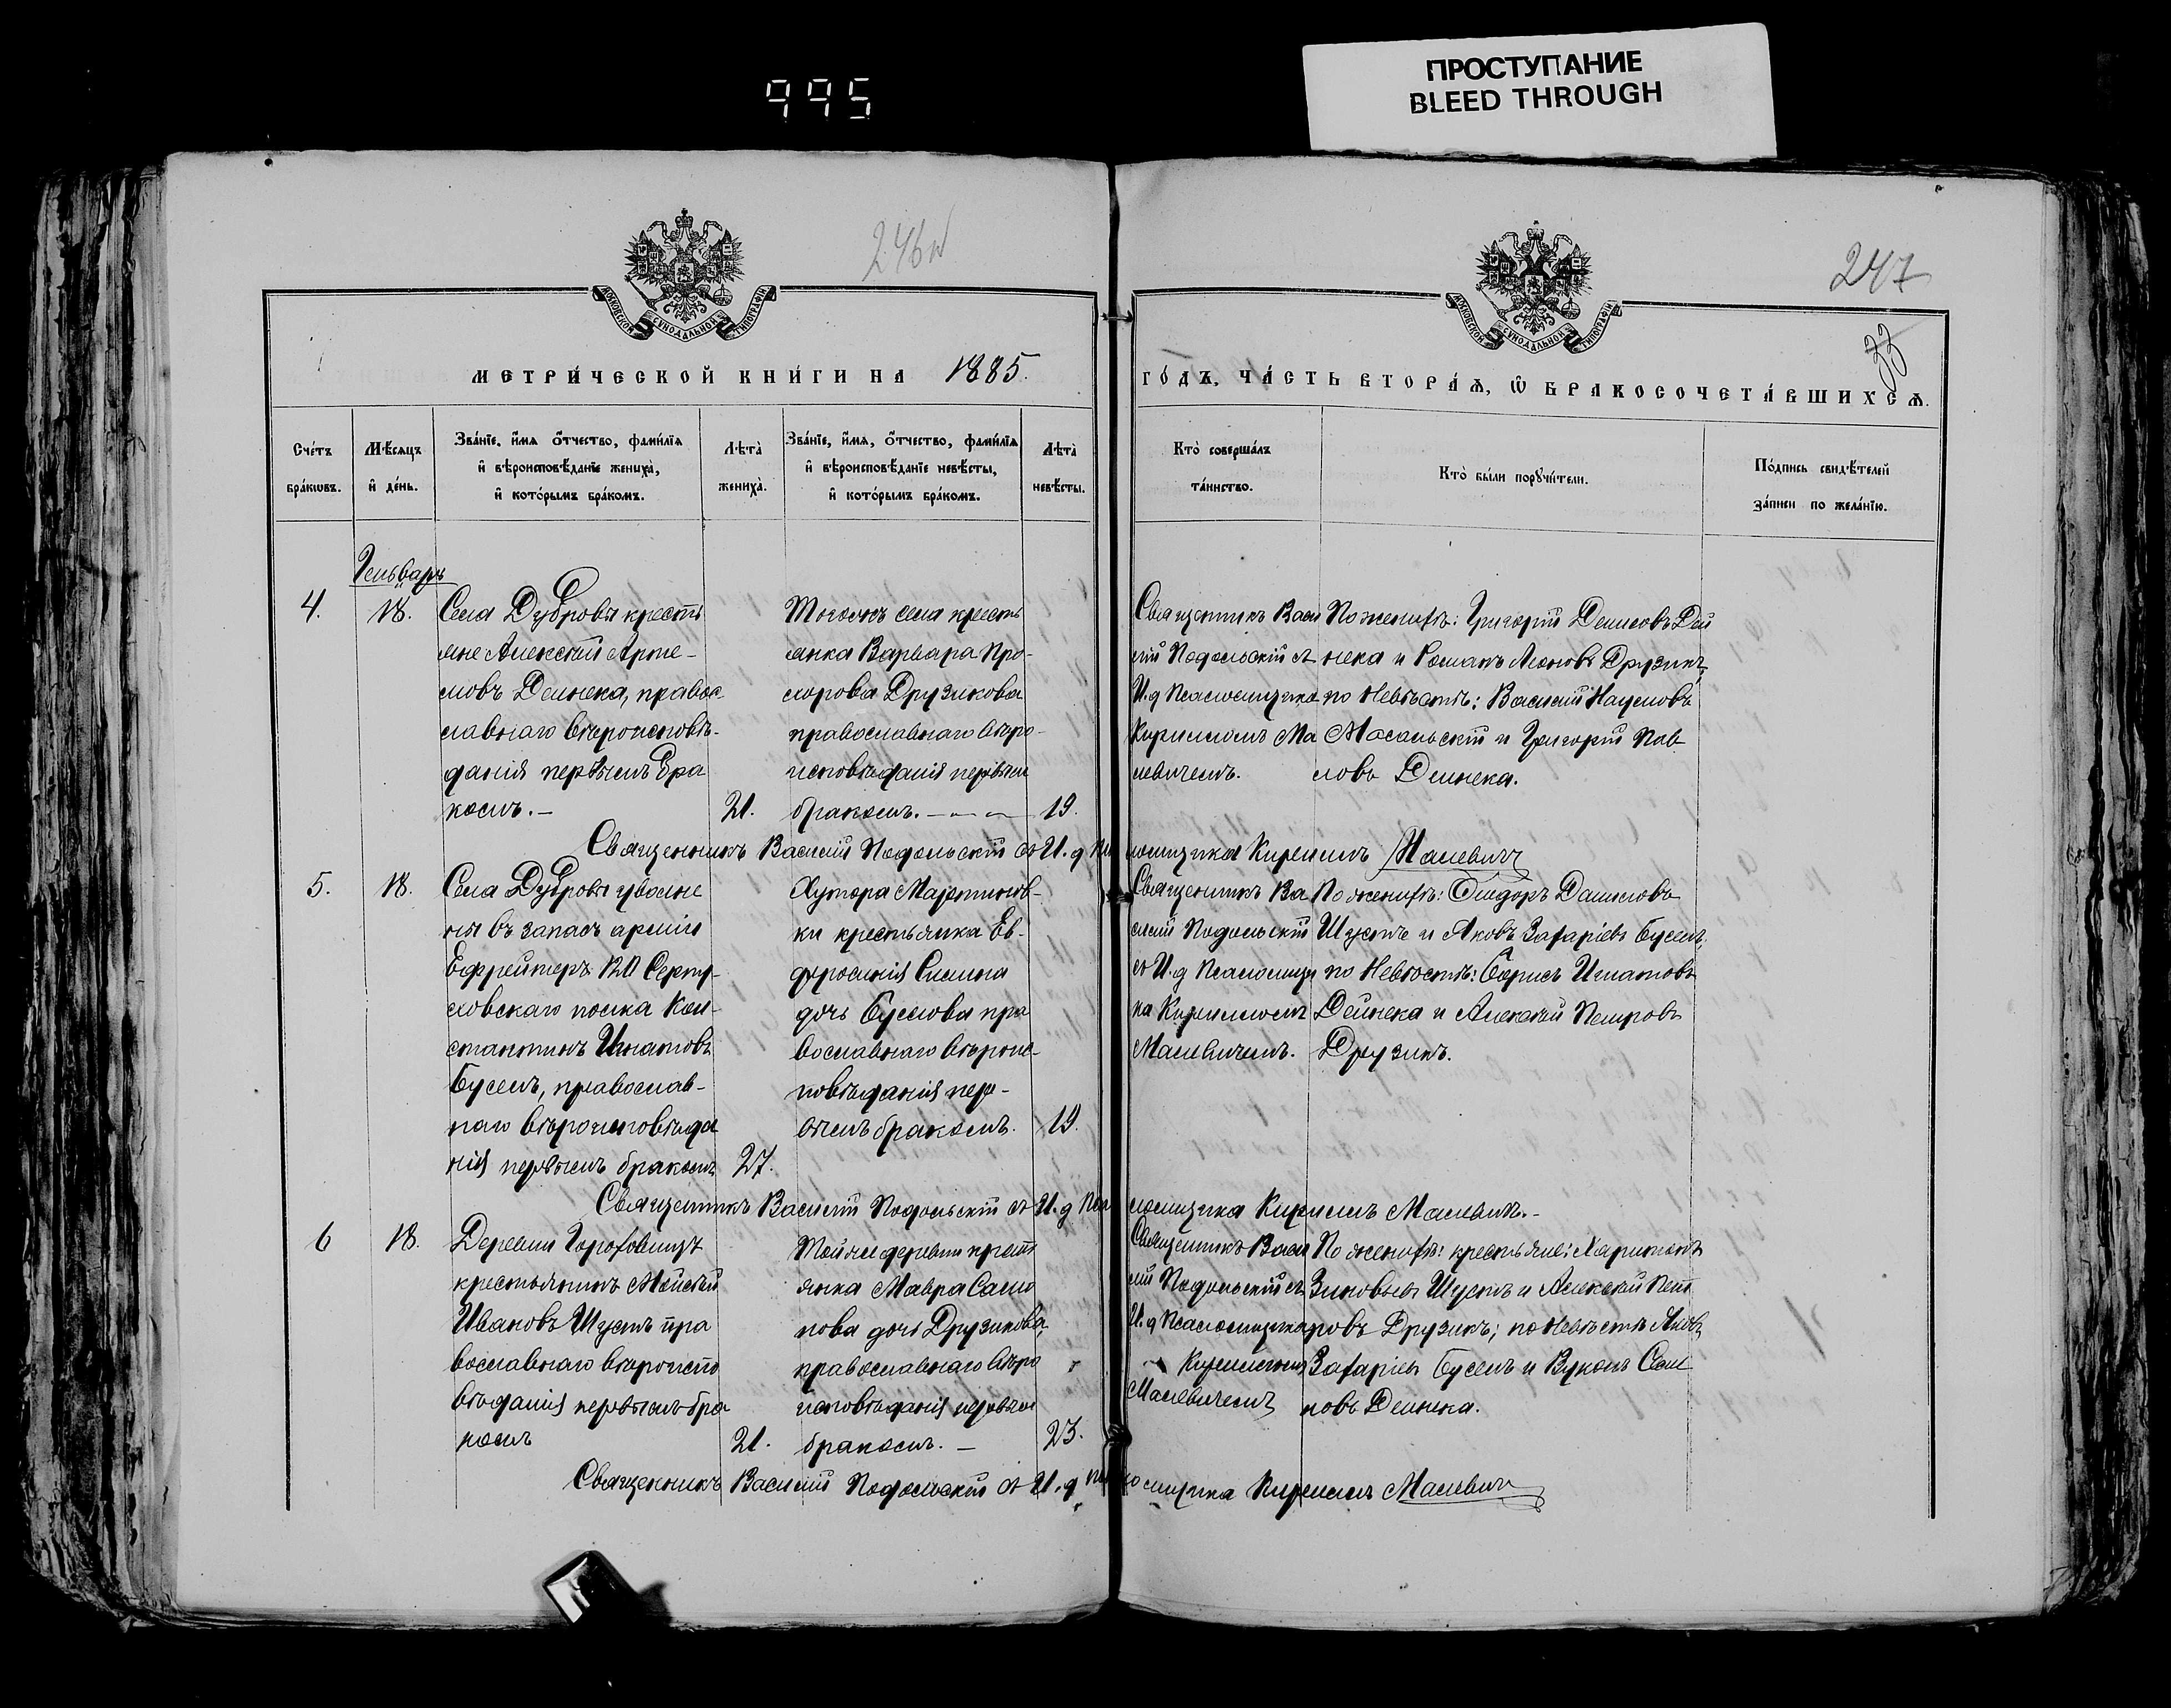 995
ПРОСТУПАНИЕ
BLEED THROUGH
247
МОСКОВСКОЙ СѴНОДАЛЬНОЙ ТИПОГРАФІИ
МОСКОВСКОЙ СѴНОДАЛЬНОЙ ТИПОГРАФІИ
МЕТРИ́ЧЕСКОЙ КНИ́ГИ НА 1885.
ГО́ДЪ, ЧА́СТЬ ВТОРА́Ѧ, Ѡ҆ БРАКОСОЧЕТА́ВШИХСѦ.
Сче́тъ
бра́кѡвъ.
Мѣ́сяцъ
и҆ де́нь.
Зва́нїе, и҆́мя ѻ҆́тчество, фами́лїя
и҆ вѣроисповѣ́данїе жениха̀,
и҆ кото́рымъ бра́комъ.
Лѣта̀
жениха̀.
Зва́нїе, и҆́мя, ѻ҆́тчество, фами́лїя
и҆ вѣроисповѣ́данїе невѣ́сты,
и҆ кото́рымъ бра́комъ.
Лѣта̀
невѣ́сты.
Кто̀ соверша́лъ
та́инство.
Кто̀ бы́ли порꙋчи́тели.
По́дпись свидѣ́телей
за́писи по жела́нїю.
4.
18.
Села Дубровы кресть
яне Алексѣй
мовъ Дейнека, правос
славнаго вѣроисповѣ-
данія первымъ бра
комъ.-
21.
Тогожъ села кресть
янка Варвара Про-
хорова Друзикова
православнаго вѣро-
исповѣданія первым
бракомъ.
19.
Священникъ Васи
лій Подольскій съ
И. д Псаломщика
Кирилломъ Ма
левичемъ.
По женихѣ: Григорій Денисовъ Дей
нека и Романъ Леоновъ Друзикъ,
по невѣстѣ: Василій Наумовъ
и Григорій Пав
ловъ Дейнека.
Священникъ Василій Подольскій съ И. д Псаломщика Кириллъ Малевичъ
5.
18.
Села Дубровы уволне
ны въ запасъ арміи
Ефрейторъ 120 Серпу-
ховскаго полка Кон-
стантинъ Игнатовъ
Буселъ, православ-
наго вѣроисповѣда
нія первымъ бракомъ
27.
Хутора Мартинов-
ки крестьянка Ев-
фросинія
дочь Буслова пра
вославнаго вѣроис-
повѣданія пер-
вымъ бракомъ.
19.
Священникъ Ва
силій Подольскій
съ И. д Псаломщи
ка Кирилломъ
Малевичемъ.
По женихѣ: Ѳеодоръ Даниловъ
Шустъ и Яковъ Захаріевъ Буселъ,
по невѣстѣ: Борисъ Игнатовъ
Дейнека и Алексѣй Петровъ
Друзикъ.
Священникъ Василій Подольскій съ И. д Псаломщика Кириллъ Малевичъ.-
6
18.
Деревни Гороховищъ
крестьянинъ Моисей
Ивановъ Шустъ пра
вославнаго вѣроиспо
вѣданія первымъ бра
комъ
21.
Тойже деревни кресть
янка Мавра
нова дочь Друзикова,
православнаго вѣро
исповѣданія первым
бракомъ. -
23.
Священникъ Васи
лій Подольскій съ
И. д Псаломщика
Кирилломъ
Малевичемъ
По женихѣ: крестьяне: Харитонъ
Зиновьевъ Шустъ и Алексѣй Пет
ровъ Друзикъ; по невѣстѣ Яковъ
Захаріевъ Буселъ и
новъ Дейнека.
Священникъ Василій Подольскій съ И. д Псаломщика Кириллъ Малевичъ